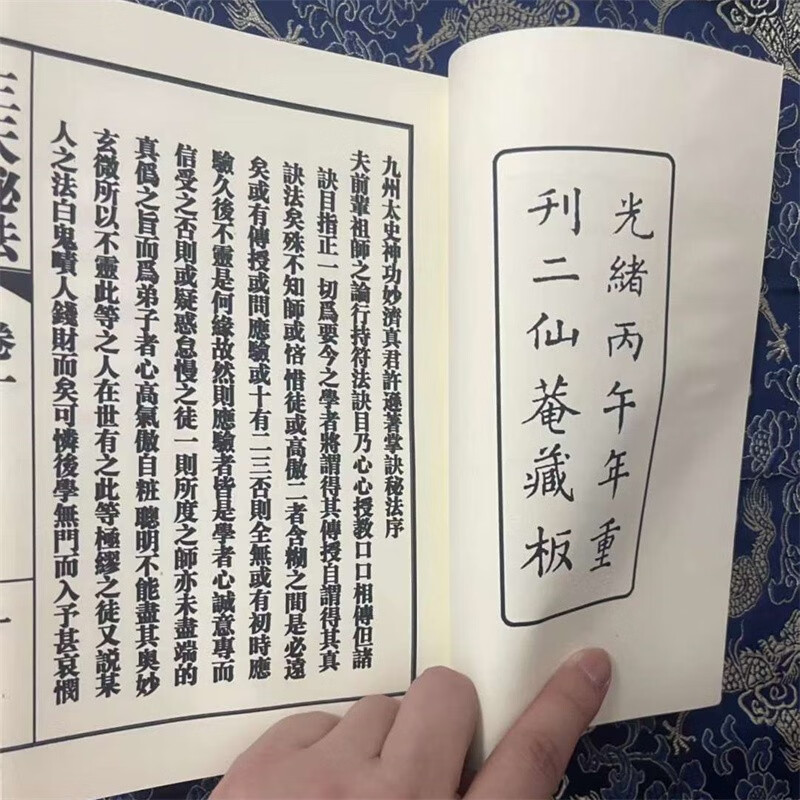 光緒丙午年重
刊二仙菴藏板
九州太史神功妙濟真君許遜著掌訣秘法序
夫前輩祖師之論行持符法訣目乃心心授教口口相傳但諸
訣目指正一切爲要今之學者將謂得其傳授自謂得其真
訣法矣殊不知師或悋惜徒或高傲二者含糊之間是必遠
矣或有傳授或問應驗或十有二三否則全無或有初時應
驗久後不靈是何緣故然則應驗者皆是學者心誠意專而
信受之否則或疑惑怠慢之徒一則所度之師亦未盡端的
真僞之旨而爲弟子者心高氣傲自粧聰明不能盡其奥妙
玄微所以不靈此等之人在世有之此等極繆之徒又説某
人之法白鬼嘖人錢財而矣可憐後學無門而入予甚哀憫
秘法
卷一
一